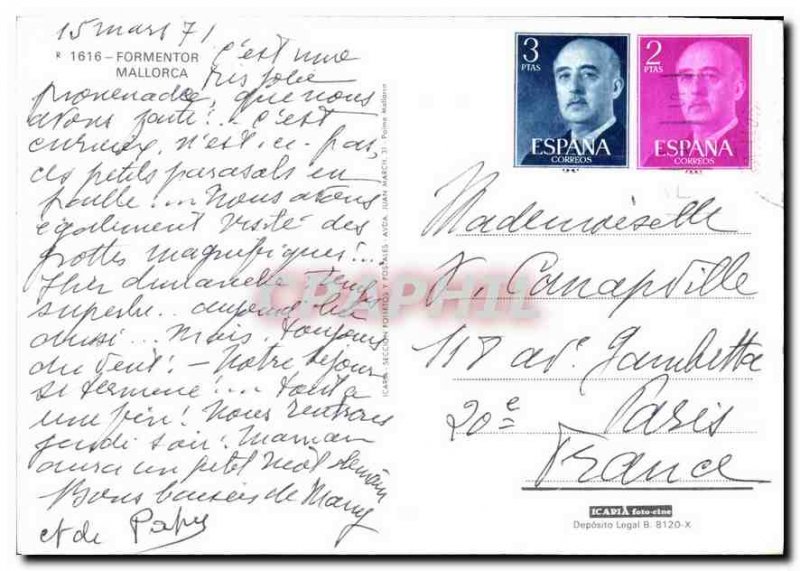 15 mars 71
R 1616 – FORMENTOR
MALLORCA
C'est une
très jolie
promenade, que nous
avons faite!.. C'est
curieux, n'est-ce-pas,
ces petits parasols en
paille!... Nous avons
également visité des
grottes magnifiques!...
Hier dimanche temps
superbe.. aujourd'hui
aussi... Mais toujours
du vent! – Notre séjour
se termine!... tout a
une fin! Nous rentrons
jeudi soir! Maman
aura un petit mot demain
Bons baisers de Mamy
et de Papy
ICARIA - SECCION POSTALES - AVDA. JUAN MARCH, 31 - Palma Mallorca
3
PTAS
ESPAÑA
CORREOS
2
PTAS
ESPAÑA
CORREOS
Mademoiselle
X. Canapville
118 av. Gambetta
20e Paris
France
ICARIA foto-cine
Depósito Legal B. 8120-X
CPAPHIL